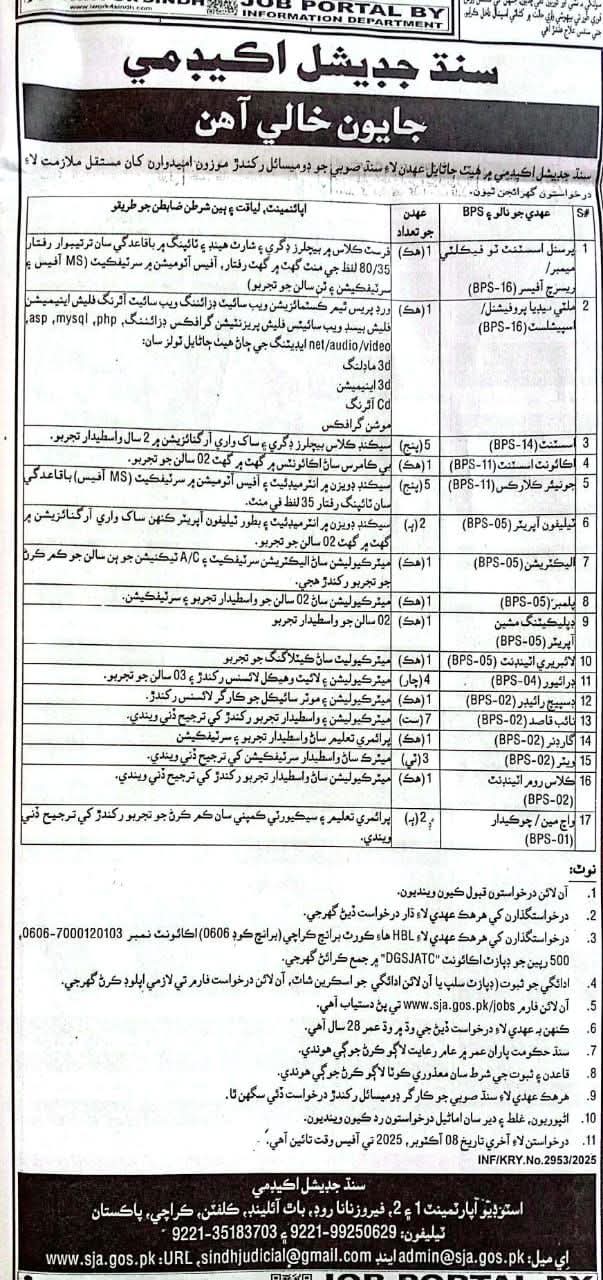 www.iwork4sindh.com
JOB PORTAL BY
INFORMATION DEPARTMENT
سنڌ جڊيشل اڪيڊمي
جايون خالي آهن
سنڌ جڊيشل اڪيڊمي ۾ هيٺ ڄاڻايل عهدن لاءِ سنڌ صوبي جو ڊوميسائل رکندڙ موزون اميدوارن کان مستقل ملازمت لاءِ
درخواستون گهرائجن ٿيون.
S# عهدي جو نالو ۽ BPS عهدن جو تعداد اپائنمينٽ، لياقت ۽ ٻين شرطن ضابطن جو طريقو
1 پرسنل اسسٽنٽ ٽو فيڪلٽي ميمبر/ ريسرچ آفيسر (BPS-16) 1 (هڪ) فرسٽ ڪلاس ۾ بيچلرز ڊگري ۽ شارٽ هينڊ ۽ ٽائپنگ ۾ باقاعدگي سان ترتيبوار رفتار
80/35 لفظ في منٽ گهٽ ۾ گهٽ رفتار، آفيس آٽوميشن ۾ سرٽيفڪيٽ (MS آفيس ۽
سرٽيفڪيشن ۽ ٽن سالن جو تجربو)
2 ملٽي ميڊيا پروفيشنل/ اسپيشلسٽ (BPS-16) 1 (هڪ) ورڊ پريس ٿيم ڪسٽمائزيشن ويب سائيٽ ڊزائننگ ويب سائيٽ آٿرنگ فليش اينيميشن
فليش بيسڊ ويب سائيٽس فليش پريزنٽيشن گرافڪس ڊزائننگ، asp, mysql, php,
net/audio/video ايڊيٽنگ جي ڄاڻ هيٺ ڄاڻايل ٽولز سان:
3d ماڊلنگ
3d اينيميشن
Cd آٿرنگ
موشن گرافڪس
3 اسسٽنٽ (BPS-14) 5 (پنج) سيڪنڊ ڪلاس بيچلرز ڊگري ۽ ساک واري آرگنائزيشن ۾ 2 سال واسطيدار تجربو.
4 اڪائونٽ اسسٽنٽ (BPS-11) 1 (هڪ) بي ڪامرس ساڻ اڪائونٽس ۾ گهٽ ۾ گهٽ 02 سالن جو تجربو.
5 جونيئر ڪلارڪس (BPS-11) 5 (پنج) سيڪنڊ ڊويزن ۾ انٽرميڊئيٽ ۽ آفيس آٽوميشن ۾ سرٽيفڪيٽ (MS آفيس) باقاعدگي
سان ٽائپنگ رفتار 35 لفظ في منٽ.
6 ٽيليفون آپريٽر (BPS-05) 2 (ٻه) سيڪنڊ ڊويزن ۾ انٽرميڊئيٽ ۽ بطور ٽيليفون آپريٽر ڪنهن ساک واري آرگنائزيشن ۾
گهٽ ۾ گهٽ 02 سالن جو تجربو.
7 اليڪٽريشن (BPS-05) 1 (هڪ) ميٽرڪيوليشن ساڻ اليڪٽريشن سرٽيفڪيٽ ۽ A/C ٽيڪنيشن جو ٻن سالن جو ڪم ڪرڻ
جو تجربو رکندڙ هجي.
8 پلمبر (BPS-05) 1 (هڪ) ميٽرڪيوليشن ساڻ 02 سالن جو واسطيدار تجربو ۽ سرٽيفڪيشن.
9 ڊپليڪيٽنگ مشين آپريٽر (BPS-05) 1 (هڪ) 02 سالن جو واسطيدار تجربو
10 لائبريري اٽينڊنٽ (BPS-05) 1 (هڪ) ميٽرڪيوليٽ ساڻ ڪيٽلاگنگ جو تجربو
11 ڊرائيور (BPS-04) 4 (چار) ميٽرڪيوليشن ۽ لائيٽ وهيڪل لائسنس رکندڙ ۽ 03 سالن جو تجربو.
12 ڊسپيچ رائيڊر (BPS-02) 1 (هڪ) ميٽرڪيوليشن ۽ موٽر سائيڪل جو ڪارگر لائسنس رکندڙ.
13 نائب قاصد (BPS-02) 7 (ست) ميٽرڪيوليشن ۽ واسطيدار تجربو رکندڙ کي ترجيح ڏني ويندي.
14 گارڊنر (BPS-02) 1 (هڪ) پرائمري تعليم ساڻ واسطيدار تجربو ۽ سرٽيفڪيشن
15 ويٽر (BPS-02) 3 (ٽي) ميٽرڪ ساڻ واسطيدار سرٽيفڪيشن کي ترجيح ڏني ويندي.
16 ڪلاس روم اٽينڊنٽ (BPS-02) 1 (هڪ) ميٽرڪيوليشن ساڻ واسطيدار تجربو رکندڙ کي ترجيح ڏني ويندي.
17 واچ مين/ چوڪيدار (BPS-01) 2 (ٻه) پرائمري تعليم ۽ سيڪيورٽي ڪمپني سان ڪم ڪرڻ جو تجربو رکندڙ کي ترجيح ڏني
ويندي.
نوٽ:
1. آن لائن درخواستون قبول ڪيون وينديون.
2. درخواستگذارن کي هر هڪ عهدي لاءِ ڌار درخواست ڏيڻ گهرجي.
3. درخواستگذارن کي هر هڪ عهدي لاءِ HBL هاءِ ڪورٽ برانچ ڪراچي (برانچ ڪوڊ 0606) اڪائونٽ نمبر 0606-7000120103,
500 رپين جو ڊپازٽ اڪائونٽ "DGSJATC" ۾ جمع ڪرائڻ گهرجي.
4. ادائگي جو ثبوت (ڊپازٽ سلپ يا آن لائن ادائگي جو اسڪرين شاٽ، آن لائن درخواست فارم تي لازمي اپلوڊ ڪرڻ گهرجي.
5. آن لائن فارم www.sja.gos.pk/jobs تي پڻ دستياب آهي.
6. ڪنهن به عهدي لاءِ درخواست ڏيڻ جي وڌ ۾ وڌ عمر 28 سال آهي.
7. سنڌ حڪومت پاران عمر ۾ عام رعايت لاڳو ڪرڻ جوڳي هوندي.
8. قاعدن ۽ ثبوت جي شرط سان معذوري ڪوٽا لاڳو ڪرڻ جوڳي هوندي.
9. هر هڪ عهدي لاءِ سنڌ صوبي جو ڪارگر ڊوميسائل رکندڙ درخواست ڏئي سگهن ٿا.
10. اڻپوريون، غلط ۽ دير سان اماڻيل درخواستون رد ڪيون وينديون.
11. درخواستن لاءِ آخري تاريخ 08 آڪٽوبر، 2025 تي آفيس وقت تائين آهي.
INF/KRY.No.2953/2025
سنڌ جڊيشل اڪيڊمي
اسٽوڊيو اپارٽمينٽ 1 ۽ 2، فيروز نانا روڊ، باٿ آئلينڊ، ڪلفٽن، ڪراچي، پاڪستان
ٽيليفون: 9221-99250629 ۽ 9221-35183703
اي ميل: admin@sja.gos.pk اينڊ sindhjudicial@gmail.com, URL: www.sja.gos.pk
JOB PORTAL BY